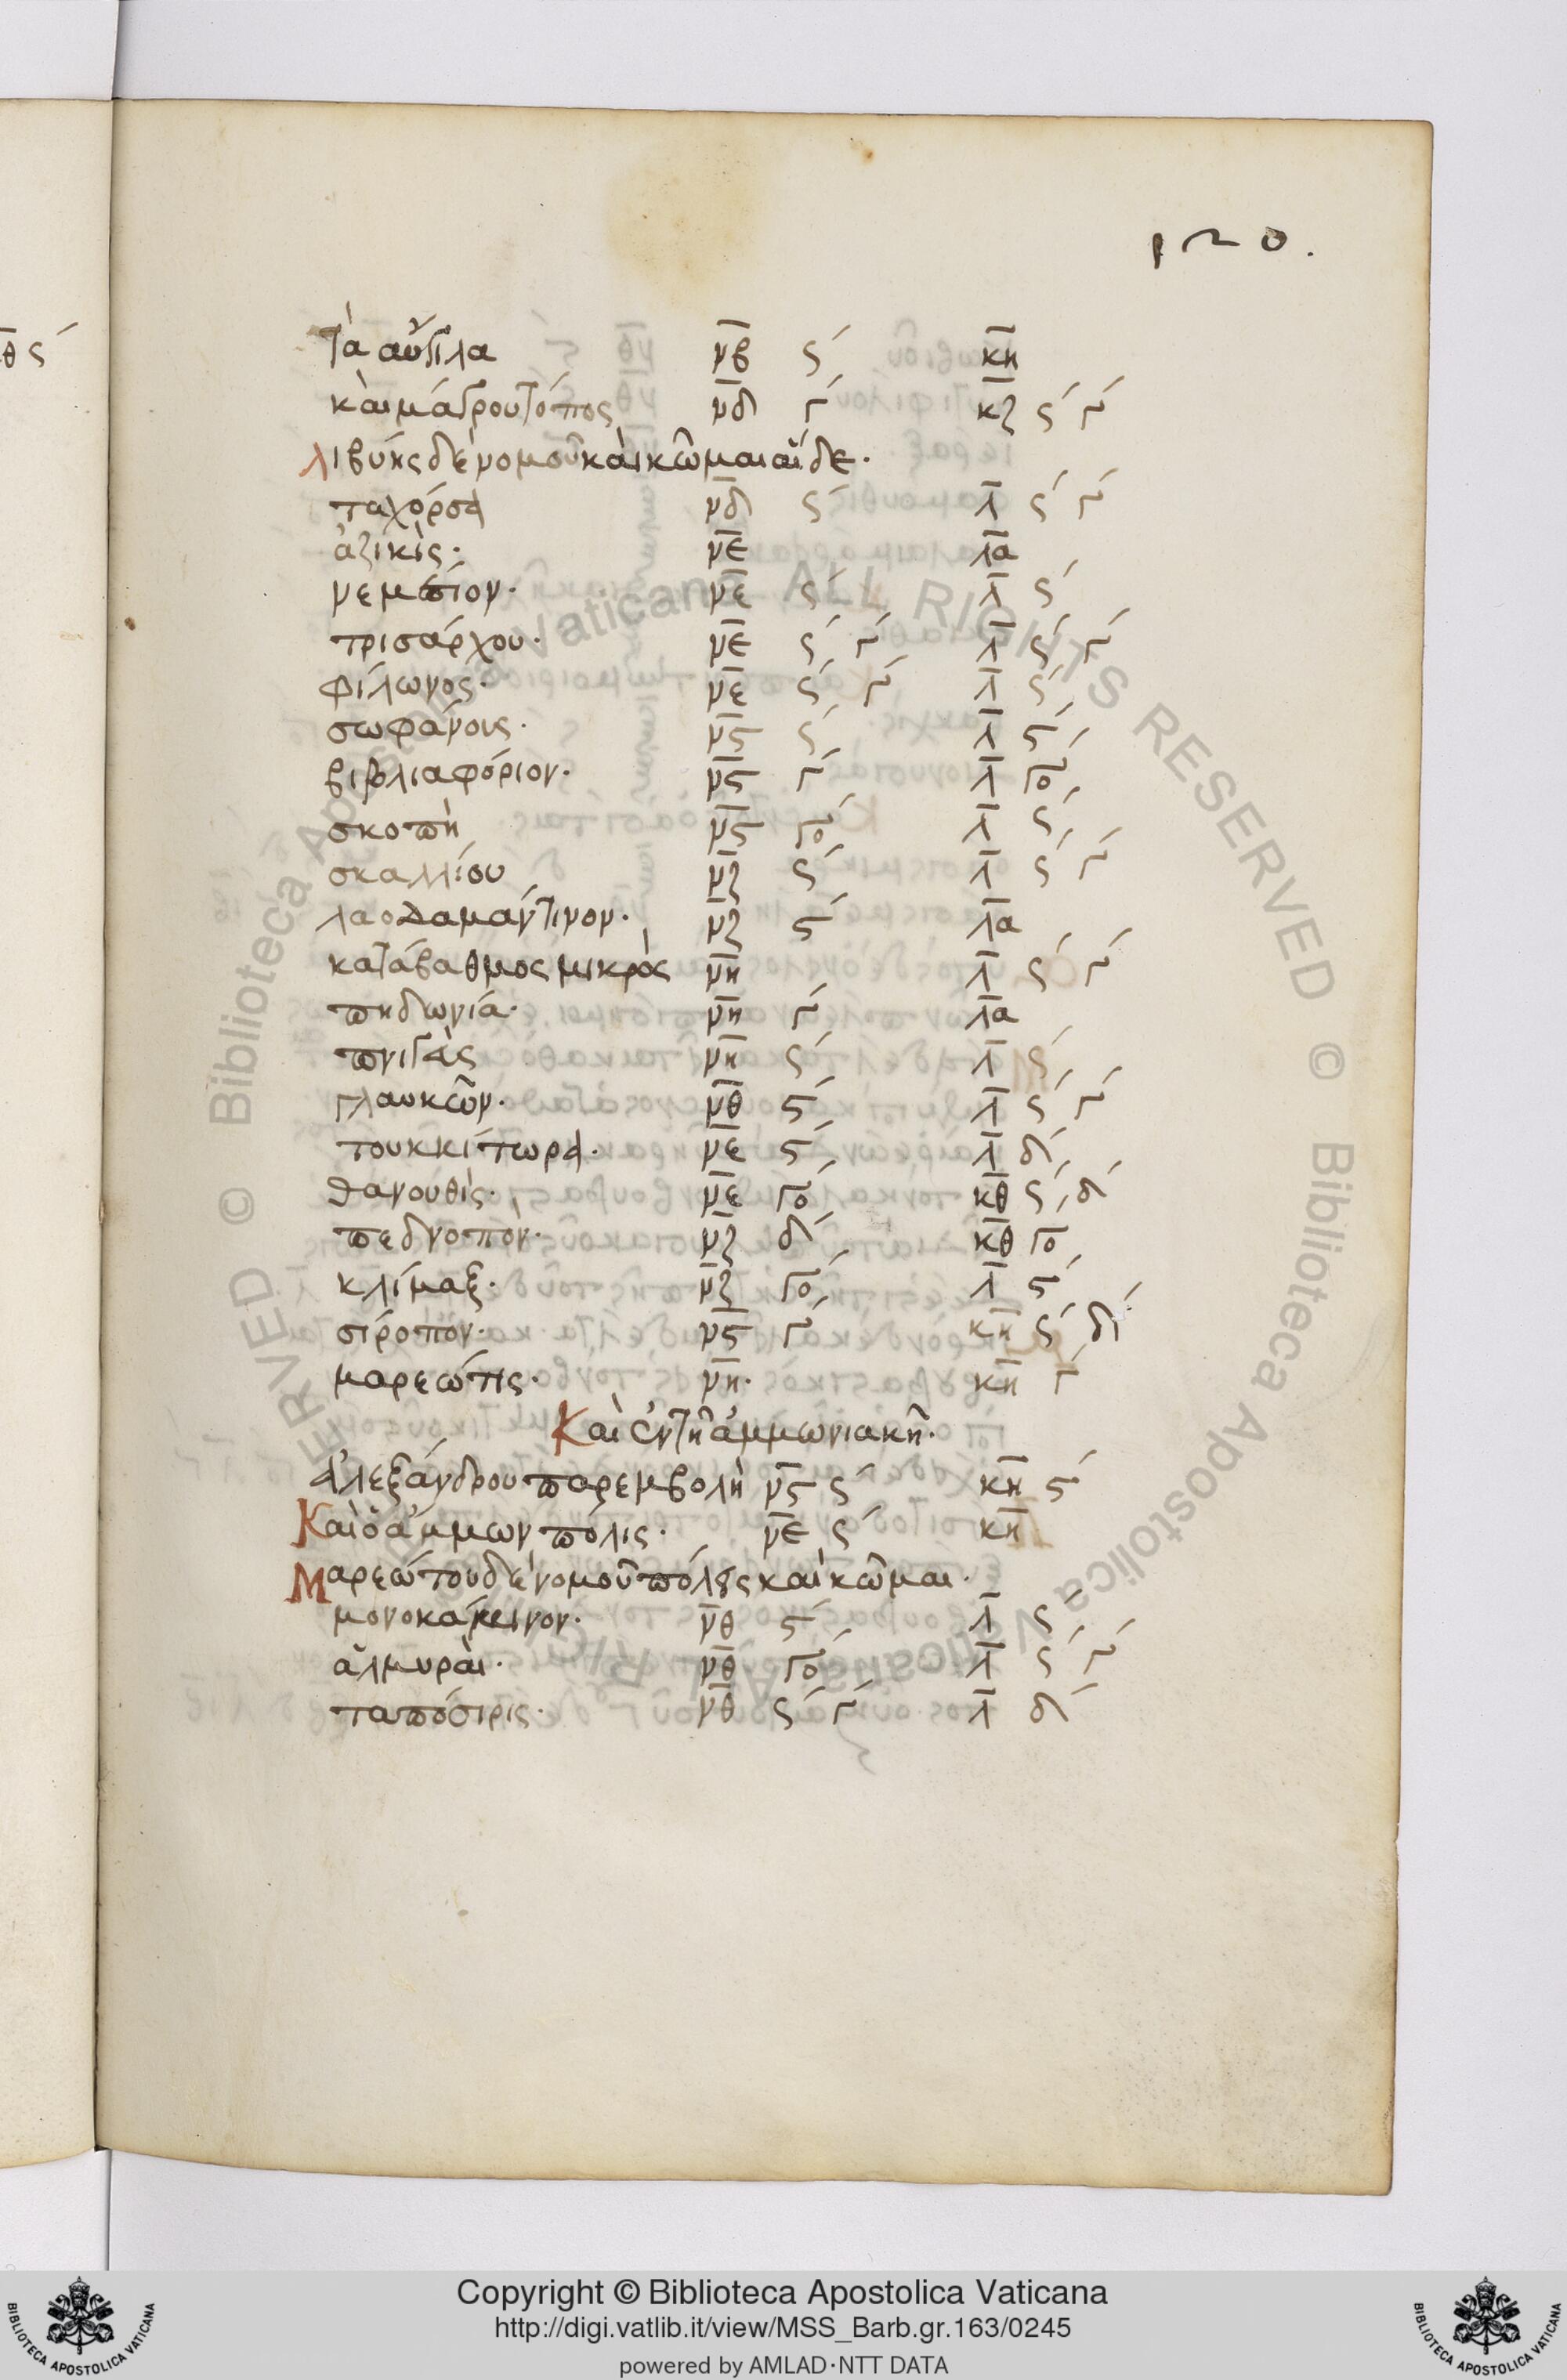 ρ２０.
τὰ αὔγιλα νβ ς κη
καὶ μάγρου τόπος νδ γ κζ ς γ
λιβύης δὲ νομοῦ καὶ κῶμαι αἵδε.
ταχόρσα νδ ς λ ς γ
ἀζικὶς. νε λα
νεμέσιον. νε ς λ ς
τρισάρχου. νε ς γ λ ς γ
φίλωνος. νε ς γ λ ς
σωφάνους. νϛ ς λ ϛ
βιβλιαφόριον. νϛ γ λ γο
σκοπὴ νϛ γο λ ς
σκαλλίου νζ ς λ ς γ
λαοδαμάντινον. νζ ϛ λα
κατάβαθμος μικρὸς νη λ ς γ
πηδωνία. νη γ λα
πνιγεὺς νη ς λ ς
γλαυκῶν. νθ ϛ λ ς γ
τουκκίτωρα. νε ϛ λ δ
θανουθὶς. νε γο κθ ς δ
πεδνοπὸν. νζ δ κθ γο
κλίμαξ. νζ γο λ ϛ
σιρόπον. νϛ γ κη ς δ
μαρεώτις. νη. κη γ
Καὶ ἐν τῇ ἀμμωνιακῇ.
ἀλεξάνδρου παρεμβολὴ νϛ ς κη ϛ
Καὶ ὁ ἄμμων πόλις. νε ς κη
Μαρεώτου δὲ νομοῦ πόλεις καὶ κῶμαι.
μονοκάμεινον. νθ ϛ λ ς
ἁλμυραὶ. νθ γο λ ς γ
ταπόσιρις. νθ ς γ λ δ
θ ς
© Biblioteca Apostolica Vaticana ALL RIGHTS RESERVED
Copyright © Biblioteca Apostolica Vaticana
http://digi.vatlib.it/view/MSS_Barb.gr.163/0245
powered by AMLAD·NTT DATA
BIBLIOTECA APOSTOLICA VATICANA
BIBLIOTECA APOSTOLICA VATICANA